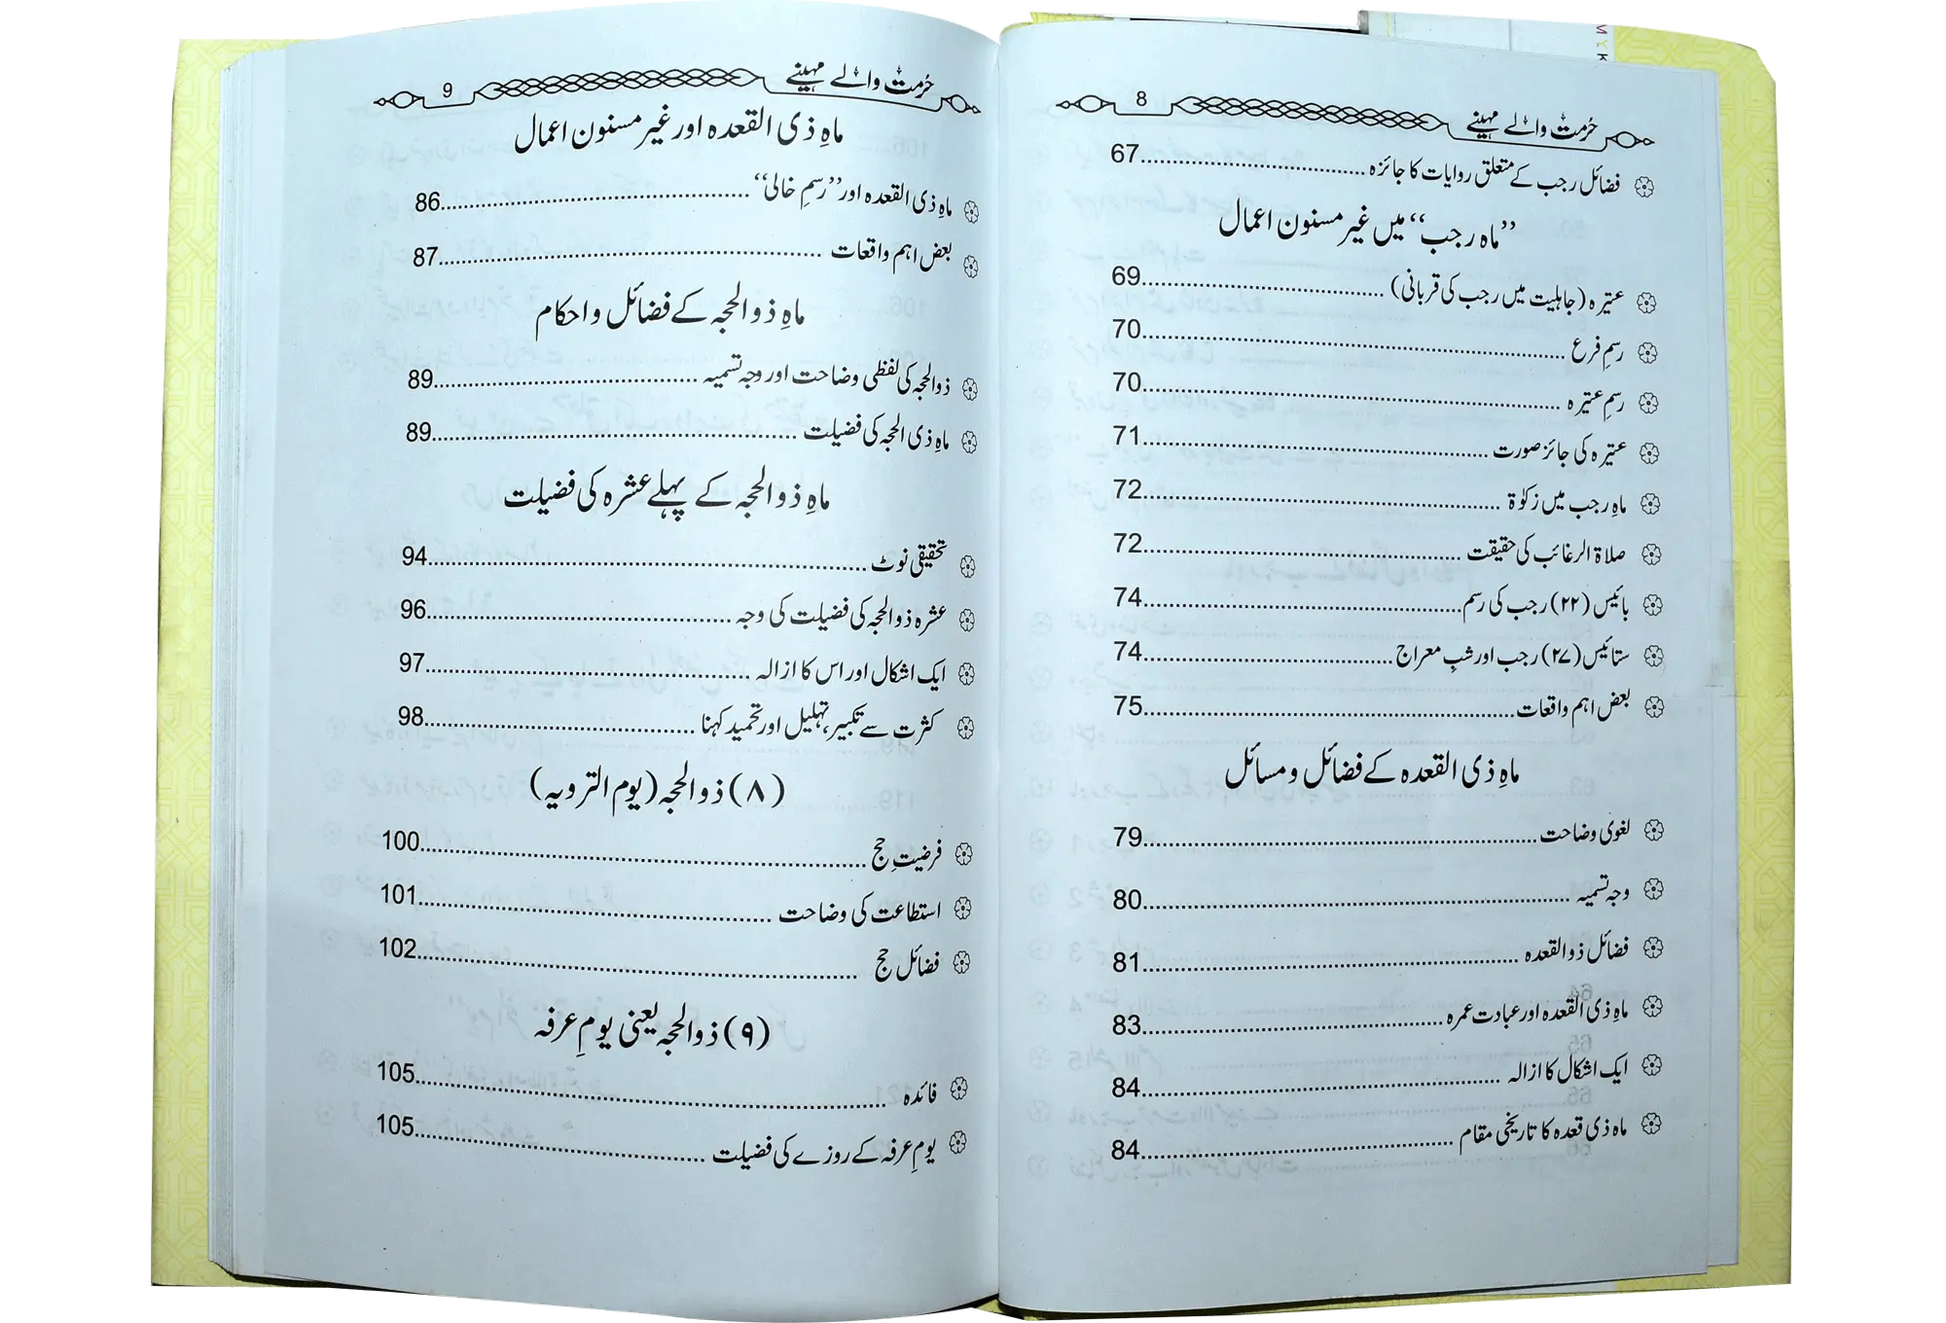 حُرمت والے مہینے 8
فضائل رجب کے متعلق روایات کا جائزہ 67
”ماہ رجب“ میں غیر مسنون اعمال
عتیرہ (جاہلیت میں رجب کی قربانی) 69
رسمِ فرع 70
رسمِ عتیرہ 70
عتیرہ کی جائز صورت 71
ماہِ رجب میں زکوٰۃ 72
صلاۃ الرغائب کی حقیقت 72
بائیس (۲۲) رجب کی رسم 74
ستائیس (۲۷) رجب اور شبِ معراج 74
بعض اہم واقعات 75
ماہِ ذی القعدہ کے فضائل و مسائل
لغوی وضاحت 79
وجہ تسمیہ 80
فضائل ذوالقعدہ 81
ماہِ ذی القعدہ اور عبادت عمرہ 83
ایک اشکال کا ازالہ 84
ماہ ذی قعدہ کا تاریخی مقام 84
حُرمت والے مہینے 9
ماہِ ذی القعدہ اور غیر مسنون اعمال
ماہِ ذی القعدہ اور ”رسمِ خالی“ 86
بعض اہم واقعات 87
ماہِ ذوالحجہ کے فضائل و احکام
ذوالحجہ کی لفظی وضاحت اور وجہ تسمیہ 89
ماہِ ذی الحجہ کی فضیلت 89
ماہِ ذوالحجہ کے پہلے عشرہ کی فضیلت
تحقیقی نوٹ 94
عشرہ ذوالحجہ کی فضیلت کی وجہ 96
ایک اشکال اور اس کا ازالہ 97
کثرت سے تکبیر، تہلیل اور تحمید کہنا 98
(۸) ذوالحجہ (یوم الترویہ)
فرضیتِ حج 100
استطاعت کی وضاحت 101
فضائل حج 102
(۹) ذوالحجہ یعنی یومِ عرفہ
فائدہ 105
یومِ عرفہ کے روزے کی فضیلت 105